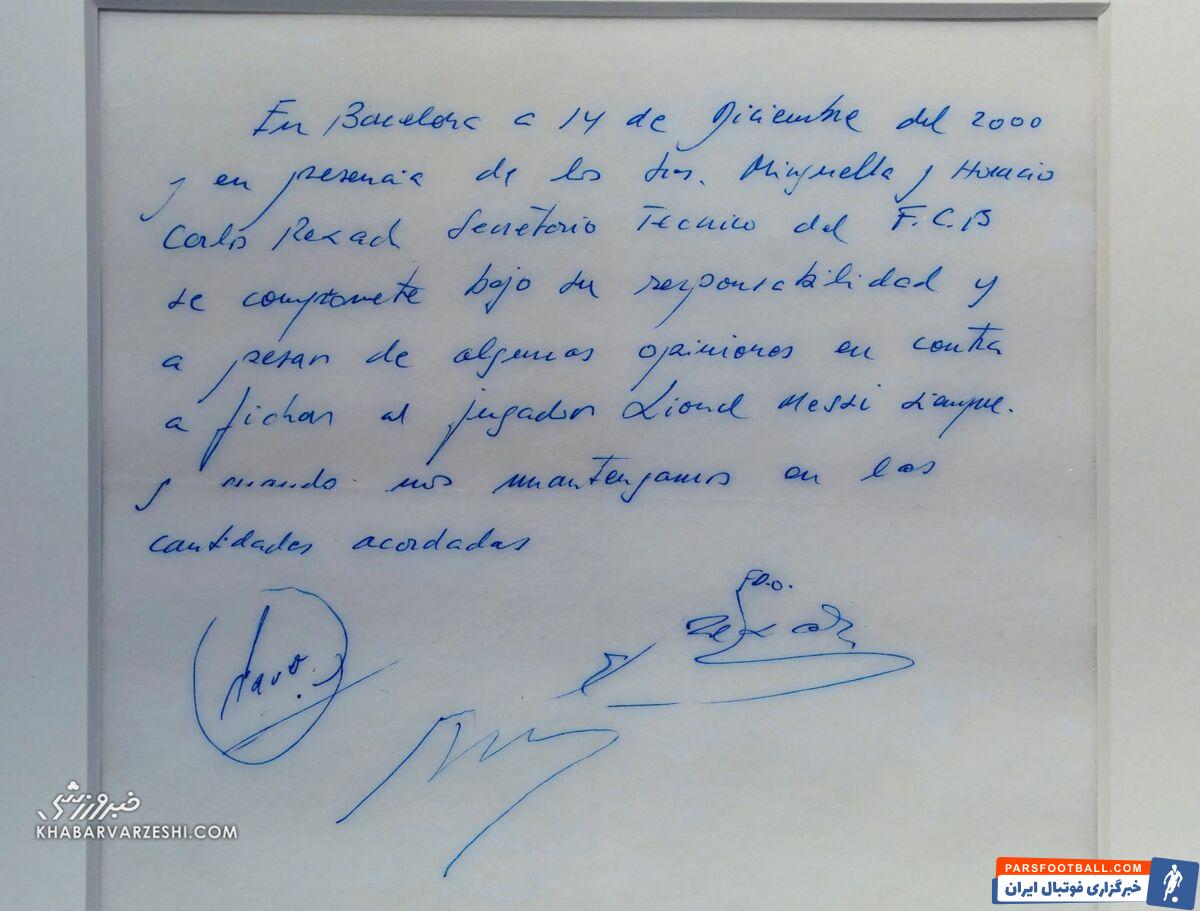 En Barcelona a 14 de Diciembre del 2000
y en presencia de los sres. Minguella y Horacio
Carlos Rexach Secretario Tecnico del F.C.B
se compromete bajo su responsabilidad y
a pesar de algunas opiniones en contra
a fichar al jugador Lionel Messi siempre.
y cuando nos mantengamos en las
cantidades acordadas
FDO.
خبرورزشی
KHABARVARZESHI.COM
PARSFOOTBALL.COM
خبرگزاری فوتبال ایران